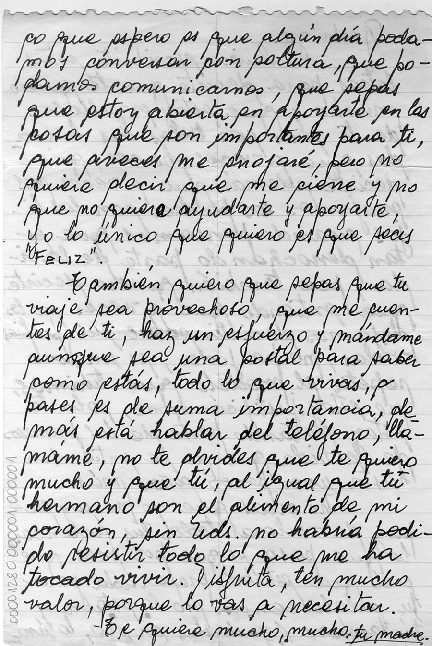 co que espero es que algún día poda-
mos conversar con soltura, que po-
damos comunicarnos, que sepas
que estoy abierta en apoyarte en las
cosas que son importanes para ti,
que aveces me enojare, pero no
quiere decir que me cierre y no
que no quiera ayudarte y apoyarte,
yo lo único que quiero es que seas
"FELIZ".
También quiero que sepas que tu
viaje sea provechoso, que me cuen-
tes de ti, haz un esfuerzo y mándame
aunque sea una postal para saber
como estás, todo lo que vivas, o
pases es de suma importancia, de
más está hablar del teléfono, llá-
mame, no te olvides que te quiero
mucho y que tú, al igual que tú
hermano son el alimento de mi
corazón, sin Uds. no habría podi-
do resistir todo lo que me ha
tocado vivir. Disfruta, ten mucho
valor, porque lo vas a necesitar.
Te quiere mucho, mucho, tu madre.